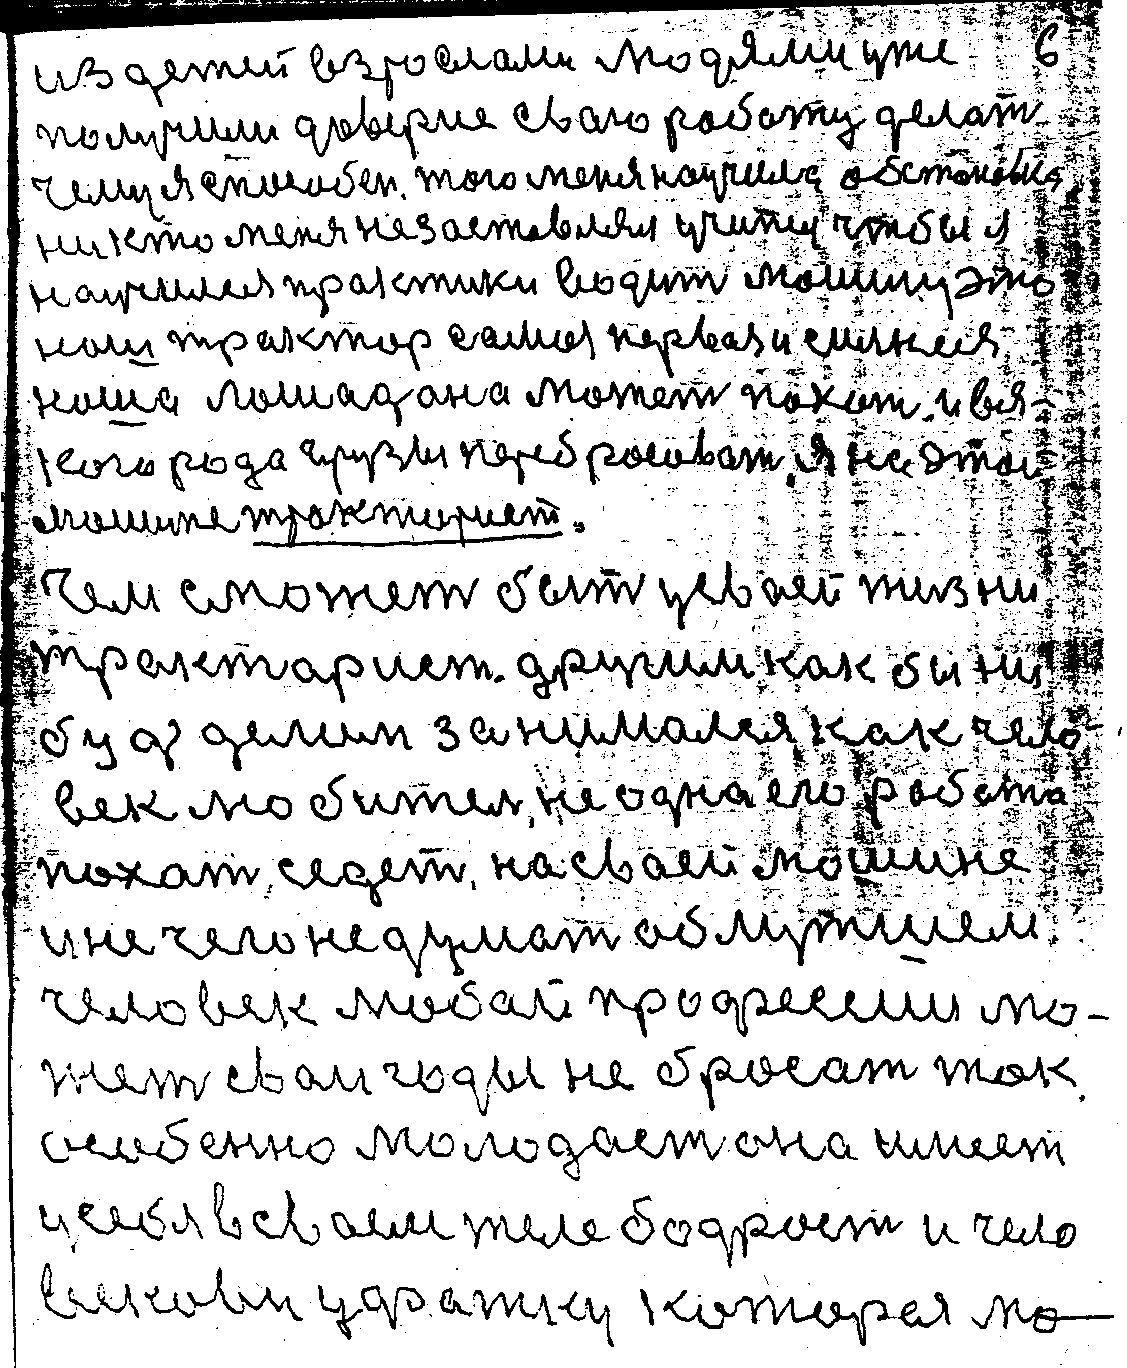 из детей взрослами людями уже 6
получили доверие сваю работу делат
чему я способен. того меня научила обстановка
никто меня не заставлял учится чтобы я
научился практики водит машину это
наш трактор самая первая и сильная
наша лошад она может пахат. и вся-
кого рода грузы перебросиват, я на этой
машине тракторист.
Чем может быт у своей жизни
тракторист. другим как бы ни
буд делим занимался, как чело-
век любител, не одна его работа
пахат, седет, на своей машине
и не чего не думат об лутшем.
человек любай профессии мо-
жет сваи годы не бросат так.
особенно молодаст она имеет
у себя в сваем теле бодрост и чело
векови удратку которая мо-